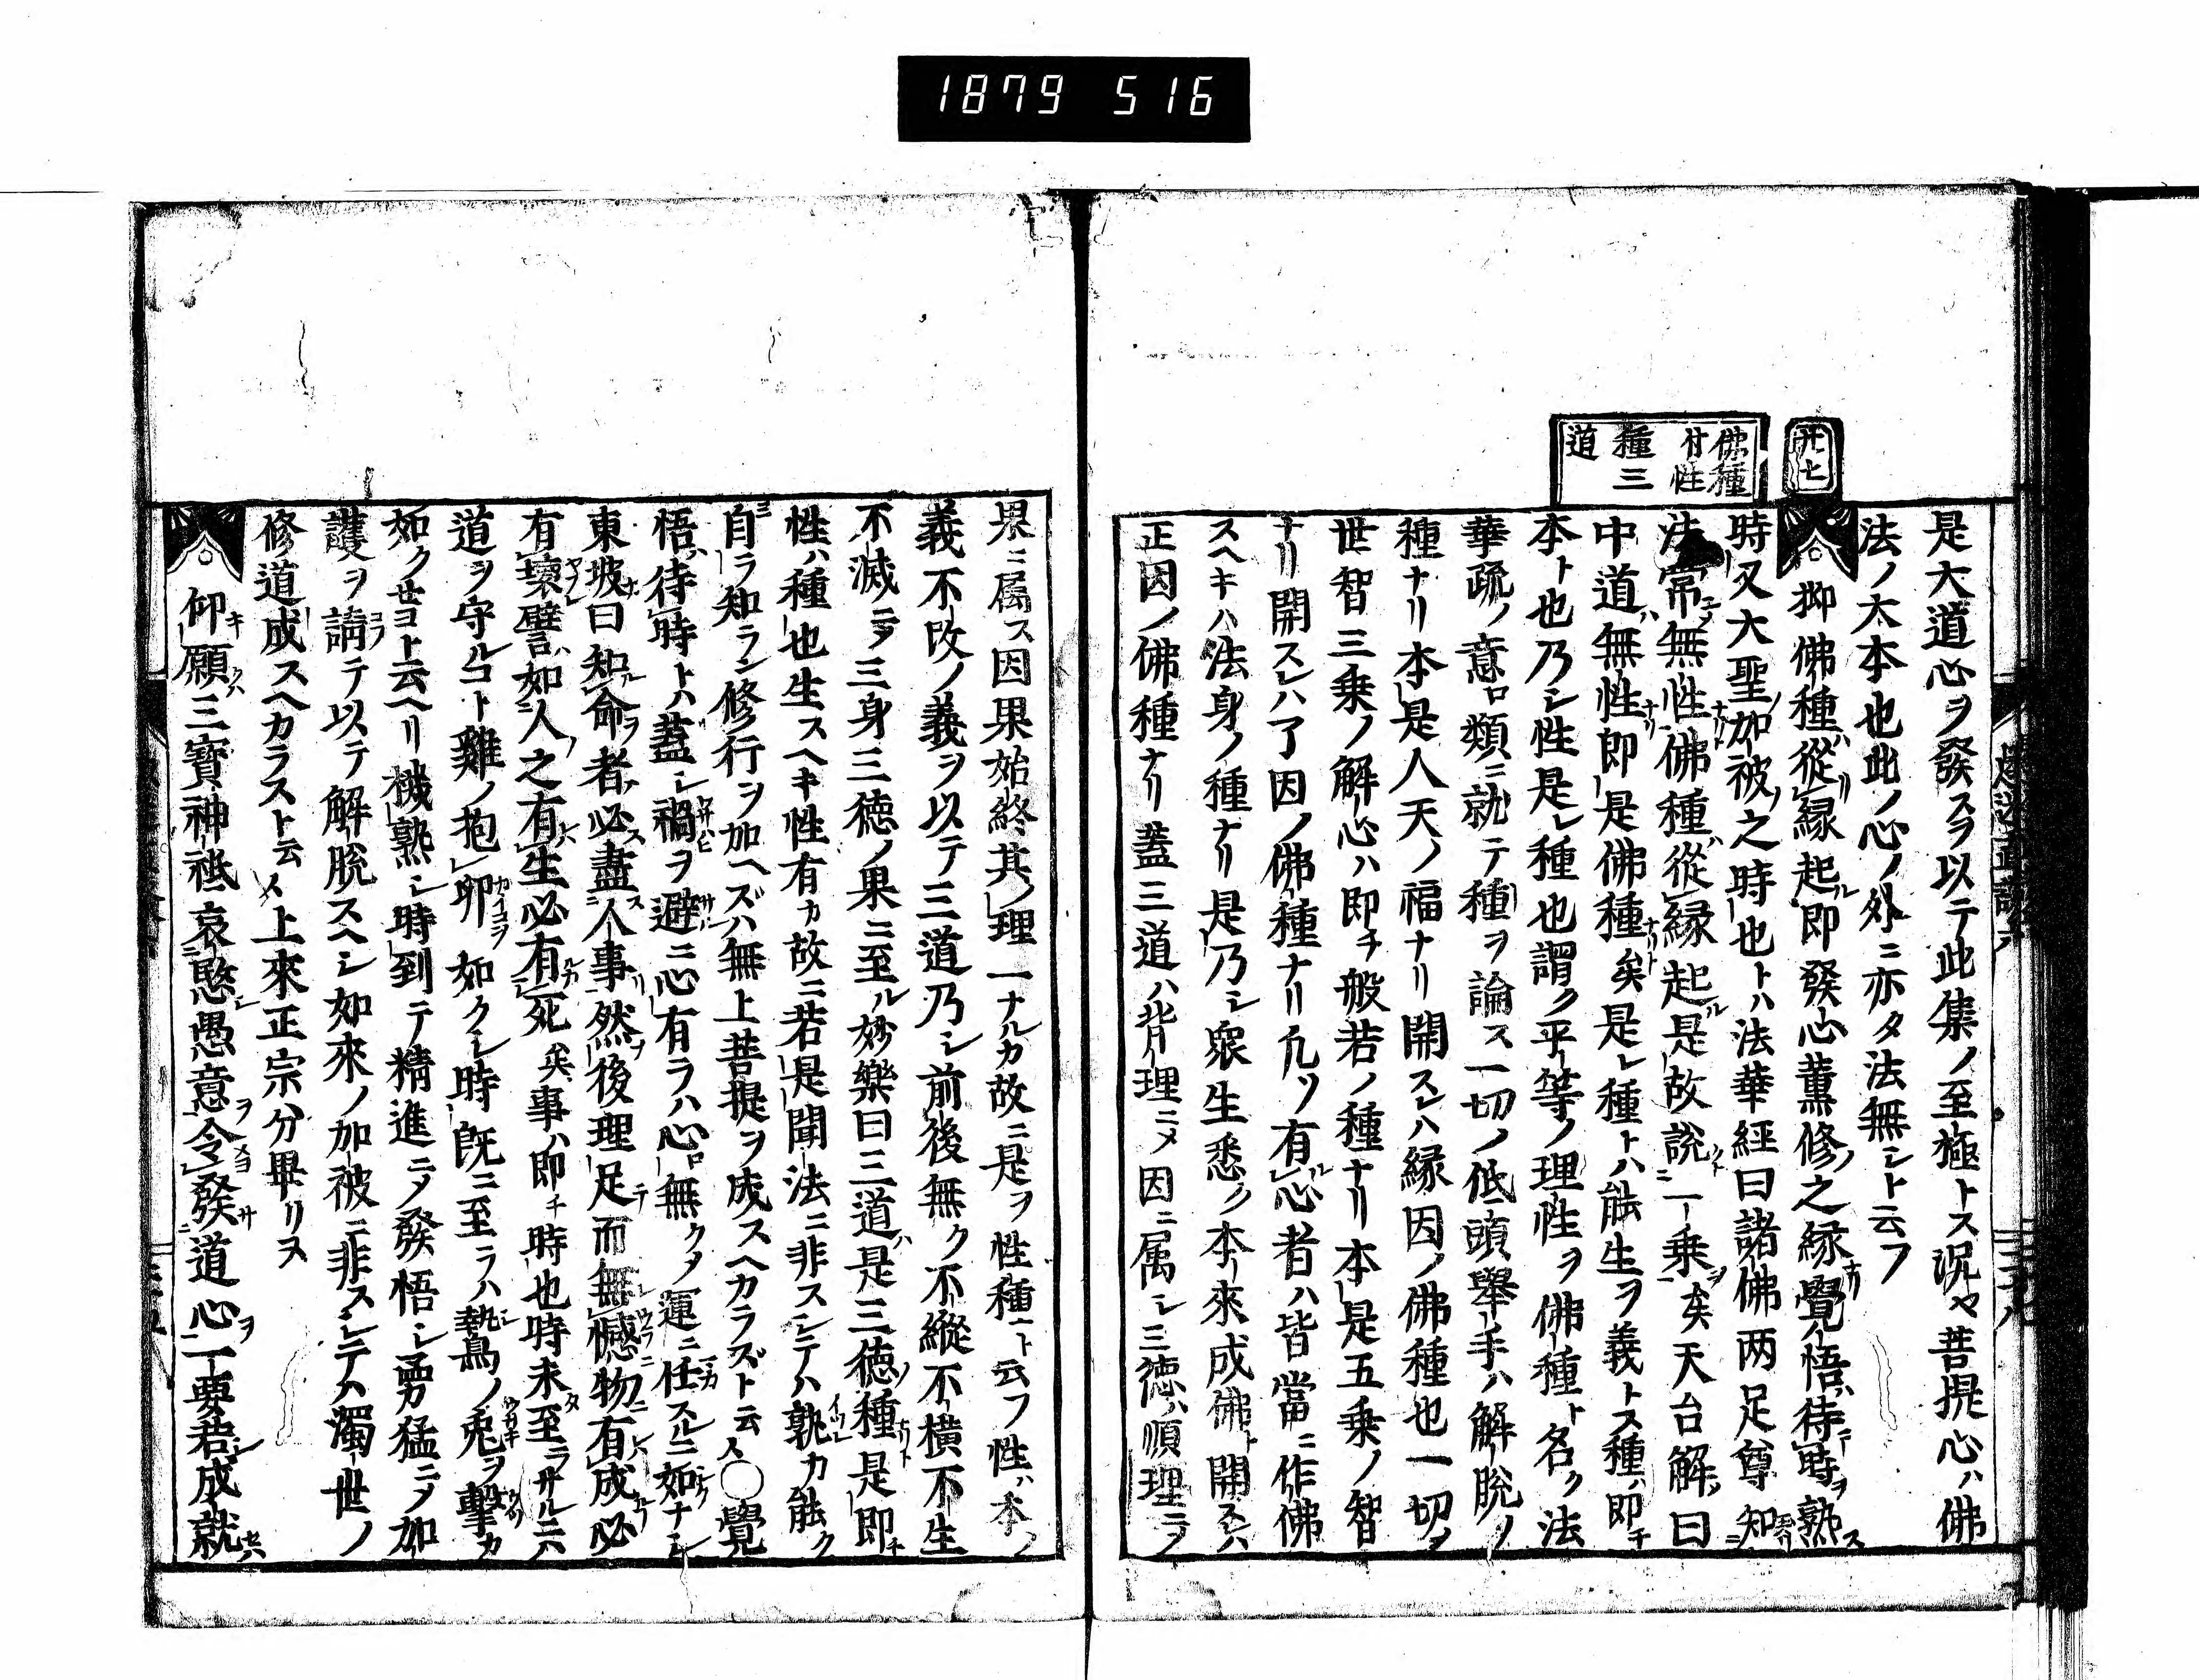 1879 516
廿七
佛種
廿性
種三
道
是大道心ヲ發スヲ以テ此集ノ至極トス況ヤ菩提心ハ佛
法ノ大本也此ノ心ノ外ニ亦タ法無シト云フ
抑佛種ハ從縁起ル即發心薫修ノ之縁ナリ覺悟ハ待テ時ヲ熟ス
時又大聖ノ加被ノ之時也トハ法華經曰諸佛两足尊知ニ
法常無性佛種ハ從縁起ル是故說クト一乗ヲ矣天台解シ曰
中道無性ナリ即是佛種ナリト矣是レ種トハ能生ヲ義トス種ハ即チ
本ト也乃シ性是レ種也謂ク平等ノ理性ヲ佛種ト名ク法
華疏ノ意ロ類ニ就テ種ヲ論ス一切ノ低頭舉手ハ解脫ノ
種ナリ本是人天ノ福ナリ開スレハ縁因ノ佛種也一切ノ
世智三乗ノ解心ハ即チ般若ノ種ナリ本是五乗ノ智
ナリ開スレハ了因ノ佛種ナリ凡ソ有心者ハ皆當ニ作佛
スヘキハ法身ノ種ナリ是乃シ衆生悉ク本來成佛ト開スレハ
正因ノ佛種ナリ蓋三道ハ背理ニメ因ニ属シ三徳ハ順理ニメ
果ニ属ス因果始終其ノ理一ナルカ故ニ是ヲ性種ト云フ性ハ本ノ
義不改ノ義ヲ以テ三道乃シ前後無ク不縱不横不生
不滅ニメ三身三徳ノ果ニ至ル妙樂曰三道ハ是三徳ノ種ナリト是即チ
性ハ種也生スヘキ性有カ故ニ若是聞法ニ非スシテハ孰カ能ク
自ラ知ラン修行ヲ加ヘズハ無上菩提ヲ成スヘカラズト云々○覺
悟ハ待時トハ蓋シ禍ヲ避ニ心有ラハ心ロ無クメ運ニ任スルニ如ナシ
東坡曰知命者必盡人事然後理足而無憾物有成必
有壞譬ハ如人之有生必有死矣事ハ即チ時也時未至ラサルニハ
道ヲ守ルコト雞ノ抱卵如クシ時既ニ至ラハ鷙鳥ノ兎ヲ擊カ
如クせヨト云ヘリ機熟シ時到テ精進ニメ發悟シ勇猛ニメ加
護ヲ請テ以テ解脫スヘシ如來ノ加被ニ非スシテハ濁世ノ
修道成スヘカラスト云々上來正宗分畢リヌ
仰キ願クハ三寶神祗哀愍愚意ヲ令發道心ヲ一要君成就